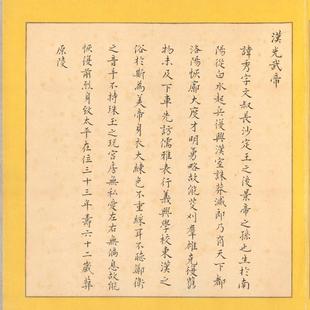 漢光武帝
諱秀字文叔長沙定王之後景帝之孫也生於南
陽從白水起兵復興漢室誅莽滅郎乃有天下都
洛陽恢廓大度才明勇略故能芟刈群雄克復舊
物未及下車先訪儒雅表行義興學校東漢之
俗於斯為美帝身衣大練色不重綵耳不聽鄭衛
之音手不持珠玉之玩宮房無私愛左右無偏恩故能
恢復前烈身致太平在位三十三年壽六十二歲葬
原陵